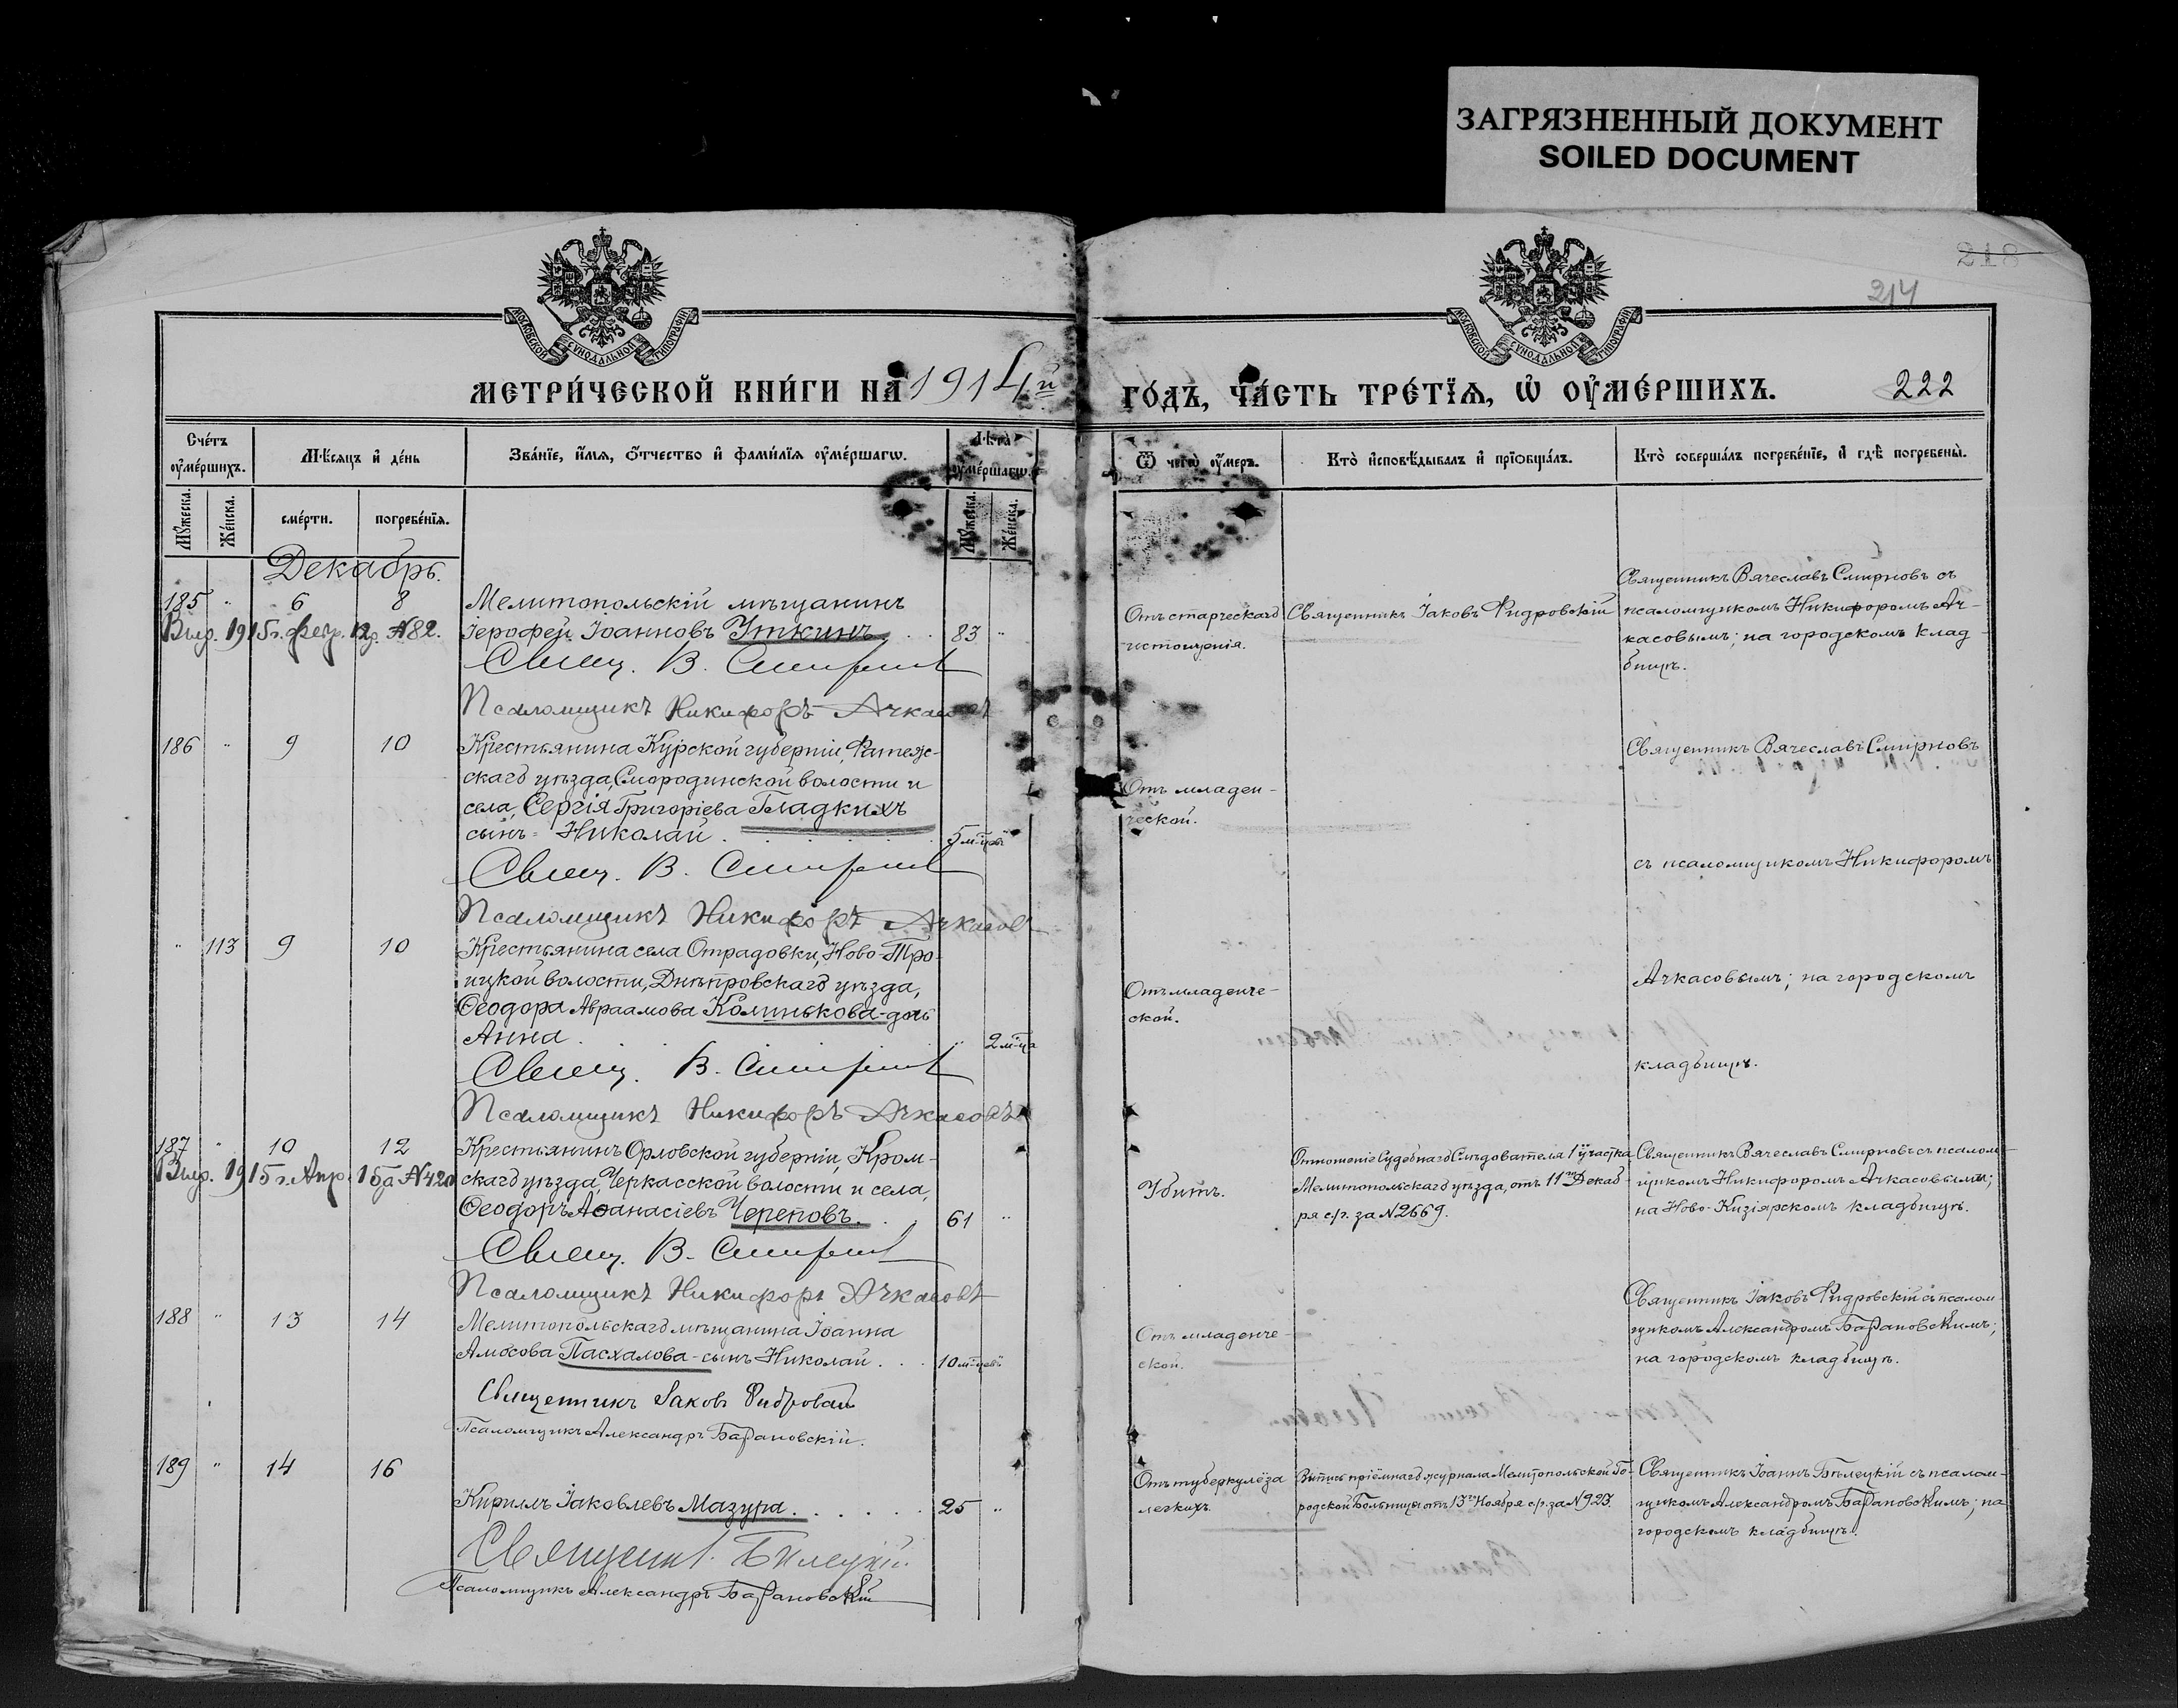 ЗАГРЯЗНЕННЫЙ ДОКУМЕНТ
SOILED DOCUMENT
218
214
МОСКОВСКОЙ СѴНОДАЛЬНОЙ ТИПОГРАФІИ
МОСКОВСКОЙ СѴНОДАЛЬНОЙ ТИПОГРАФІИ
МЕТРИ́ЧЕСКОЙ КНИ́ГИ НА 1914й ГО́ДЪ, ЧА́СТЬ ТРЕ́ТЇѦ, Ѡ҆ ОУ҆МЕ́РШИХЪ.
222
Сче́тъ оу҆ме́ршихъ.
Мꙋжеска.
Же́нска.
Мѣ́сяцъ и҆ де́нь
сме́рти.
погребе́нїѧ.
Зва́нїе, и҆́мѧ, о҆́тчество и҆ фами́лїѧ оу҆ме́ршагѡ.
Лѣ́та оу҆ме́ршагѡ.
Мꙋжеска.
Же́нска.
Ѿ чегѡ̀ оу҆́меръ.
Кто̀ и҆сповѣ́дывалъ и҆ прїѡбща́лъ.
Кто̀ соверша́лъ погребе́нїе, и҆ гдѣ̀ погребены̀.
Декабрь.
185 " 6 8
Выд. 1915 г. февр. 12 д. №82.
Мелитопольскій мѣщанинъ
Іерофей Іоанновъ Уткинъ . . 83 "
Свящ. В. Смирнов
Псаломщикъ Никифоръ Ачкасовъ
Отъ старческаго
истощенія.
Священникъ Іаковъ Фидровскій
Священникъ Вячеславъ Смирновъ съ
псаломщикомъ Никифоромъ Ач-
касовымъ; на городскомъ клад-
бищѣ.
186 " 9 10
Крестьянина Курской губерніи, Фатеж-
скаго уѣзда, Смородинской волости и
села, Сергія Григоріева Гладкихъ
сынъ - Николай . . . . . 5 м-цевъ
Свящ. В. Смирнов
Псаломщикъ Никифоръ Ачкасовъ
Отъ младен-
ческой.
Священникъ Вячеславъ Смирновъ
съ псаломщикомъ Никифоромъ
" 113 9 10
Крестьянина села Отрадовки, Ново-Тро-
ицкой волости, Днѣпровскаго уѣзда,
Ѳеодора Авраамова Колинькова - дочь
Анна . . . . " 2 м-ца
Свящ. В. Смирнов
Псаломщикъ Никифоръ Ачкасовъ
Отъ младенче-
ской.
Ачкасовымъ; на городскомъ
кладбищѣ.
187 " 10 12
Выд. 1915 г. Апр. 15 д №420
Крестьянинъ Орловской губерніи, Кром-
скаго уѣзда, Черкасской волости и села,
Ѳеодоръ Аѳанасіевъ Череповъ . . 61 "
Свящ. В. Смирнов
Псаломщикъ Никифоръ Ачкасовъ
Убитъ.
Отношеніе Судебнаго Слѣдователя 1 участка
Мелитопольскаго уѣзда, отъ 11го Декаб-
ря с/г. за №2669.
Священникъ Вячеславъ Смирновъ съ псалом-
щикомъ Никифоромъ Ачкасовымъ;
на Ново-Кизіярскомъ кладбищѣ.
188 " 13 14
Мелитопольскаго мѣщанина Іоанна
Амосова Пасхалова - сынъ Николай . . 10 м-цевъ
Священникъ Іаковъ Фидровскій
Псаломщикъ Александръ Барановскій.
Отъ младенче-
ской.
Священникъ Іаковъ Фидровскій съ псалом-
щикомъ Александромъ Барановскимъ;
на городскомъ кладбищѣ.
189 " 14 16
Кириллъ Іаковлевъ Мазура . . . . . 25 "
Священник. Билецкій.
Псаломщикъ Александръ Барановскій
Отъ туберкулёза
легкихъ.
Выпись пріёмнаго журнала Мелитопольской Го-
родской Больницы отъ 13го Ноября с/г. за №923.
Священникъ Іоаннъ Бѣлецкій съ псалом-
щикомъ Александромъ Барановскимъ; на
городскомъ кладбищѣ.